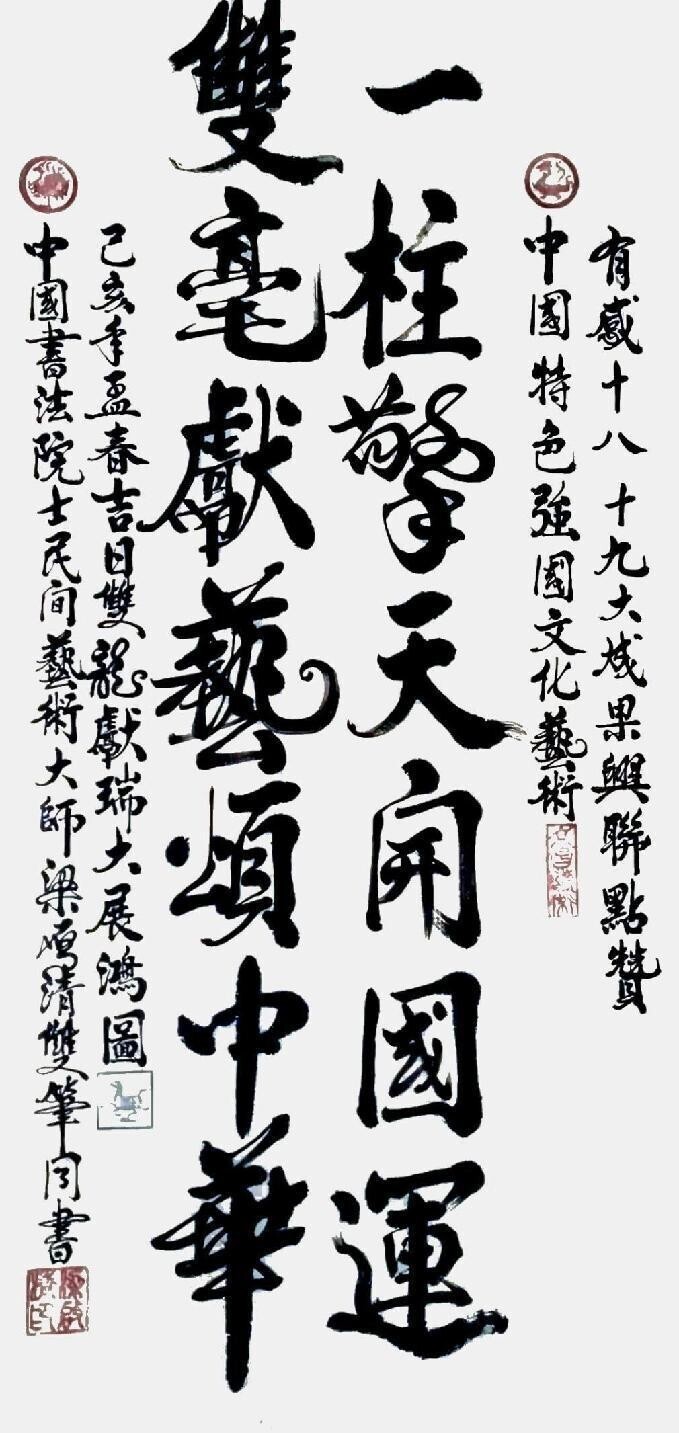 有感十八十九大成果興聯點贊
中國特色強國文化藝術
一柱擎天開國運
雙毫獻藝頌中華
己亥年孟春吉日雙龍獻瑞大展鴻圖
中國書法院士民間藝術大師梁 清雙筆同書